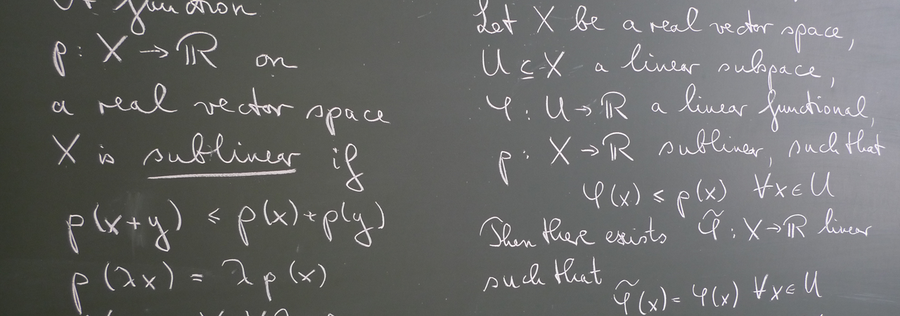 function
p : X → ℝ on
a real vector space
X is sublinear if
p(x+y) ≤ p(x)+p(y)
p(λx) = λp(x)
Let X be a real vector space,
U ⊆ X a linear subspace,
φ : U → ℝ a linear functional,
p : X → ℝ sublinear, such that
φ(x) ≤ p(x) ∀x∈U
Then there exists φ̃ : X→ℝ linear
such that
φ̃(x) = φ(x) ∀x∈U